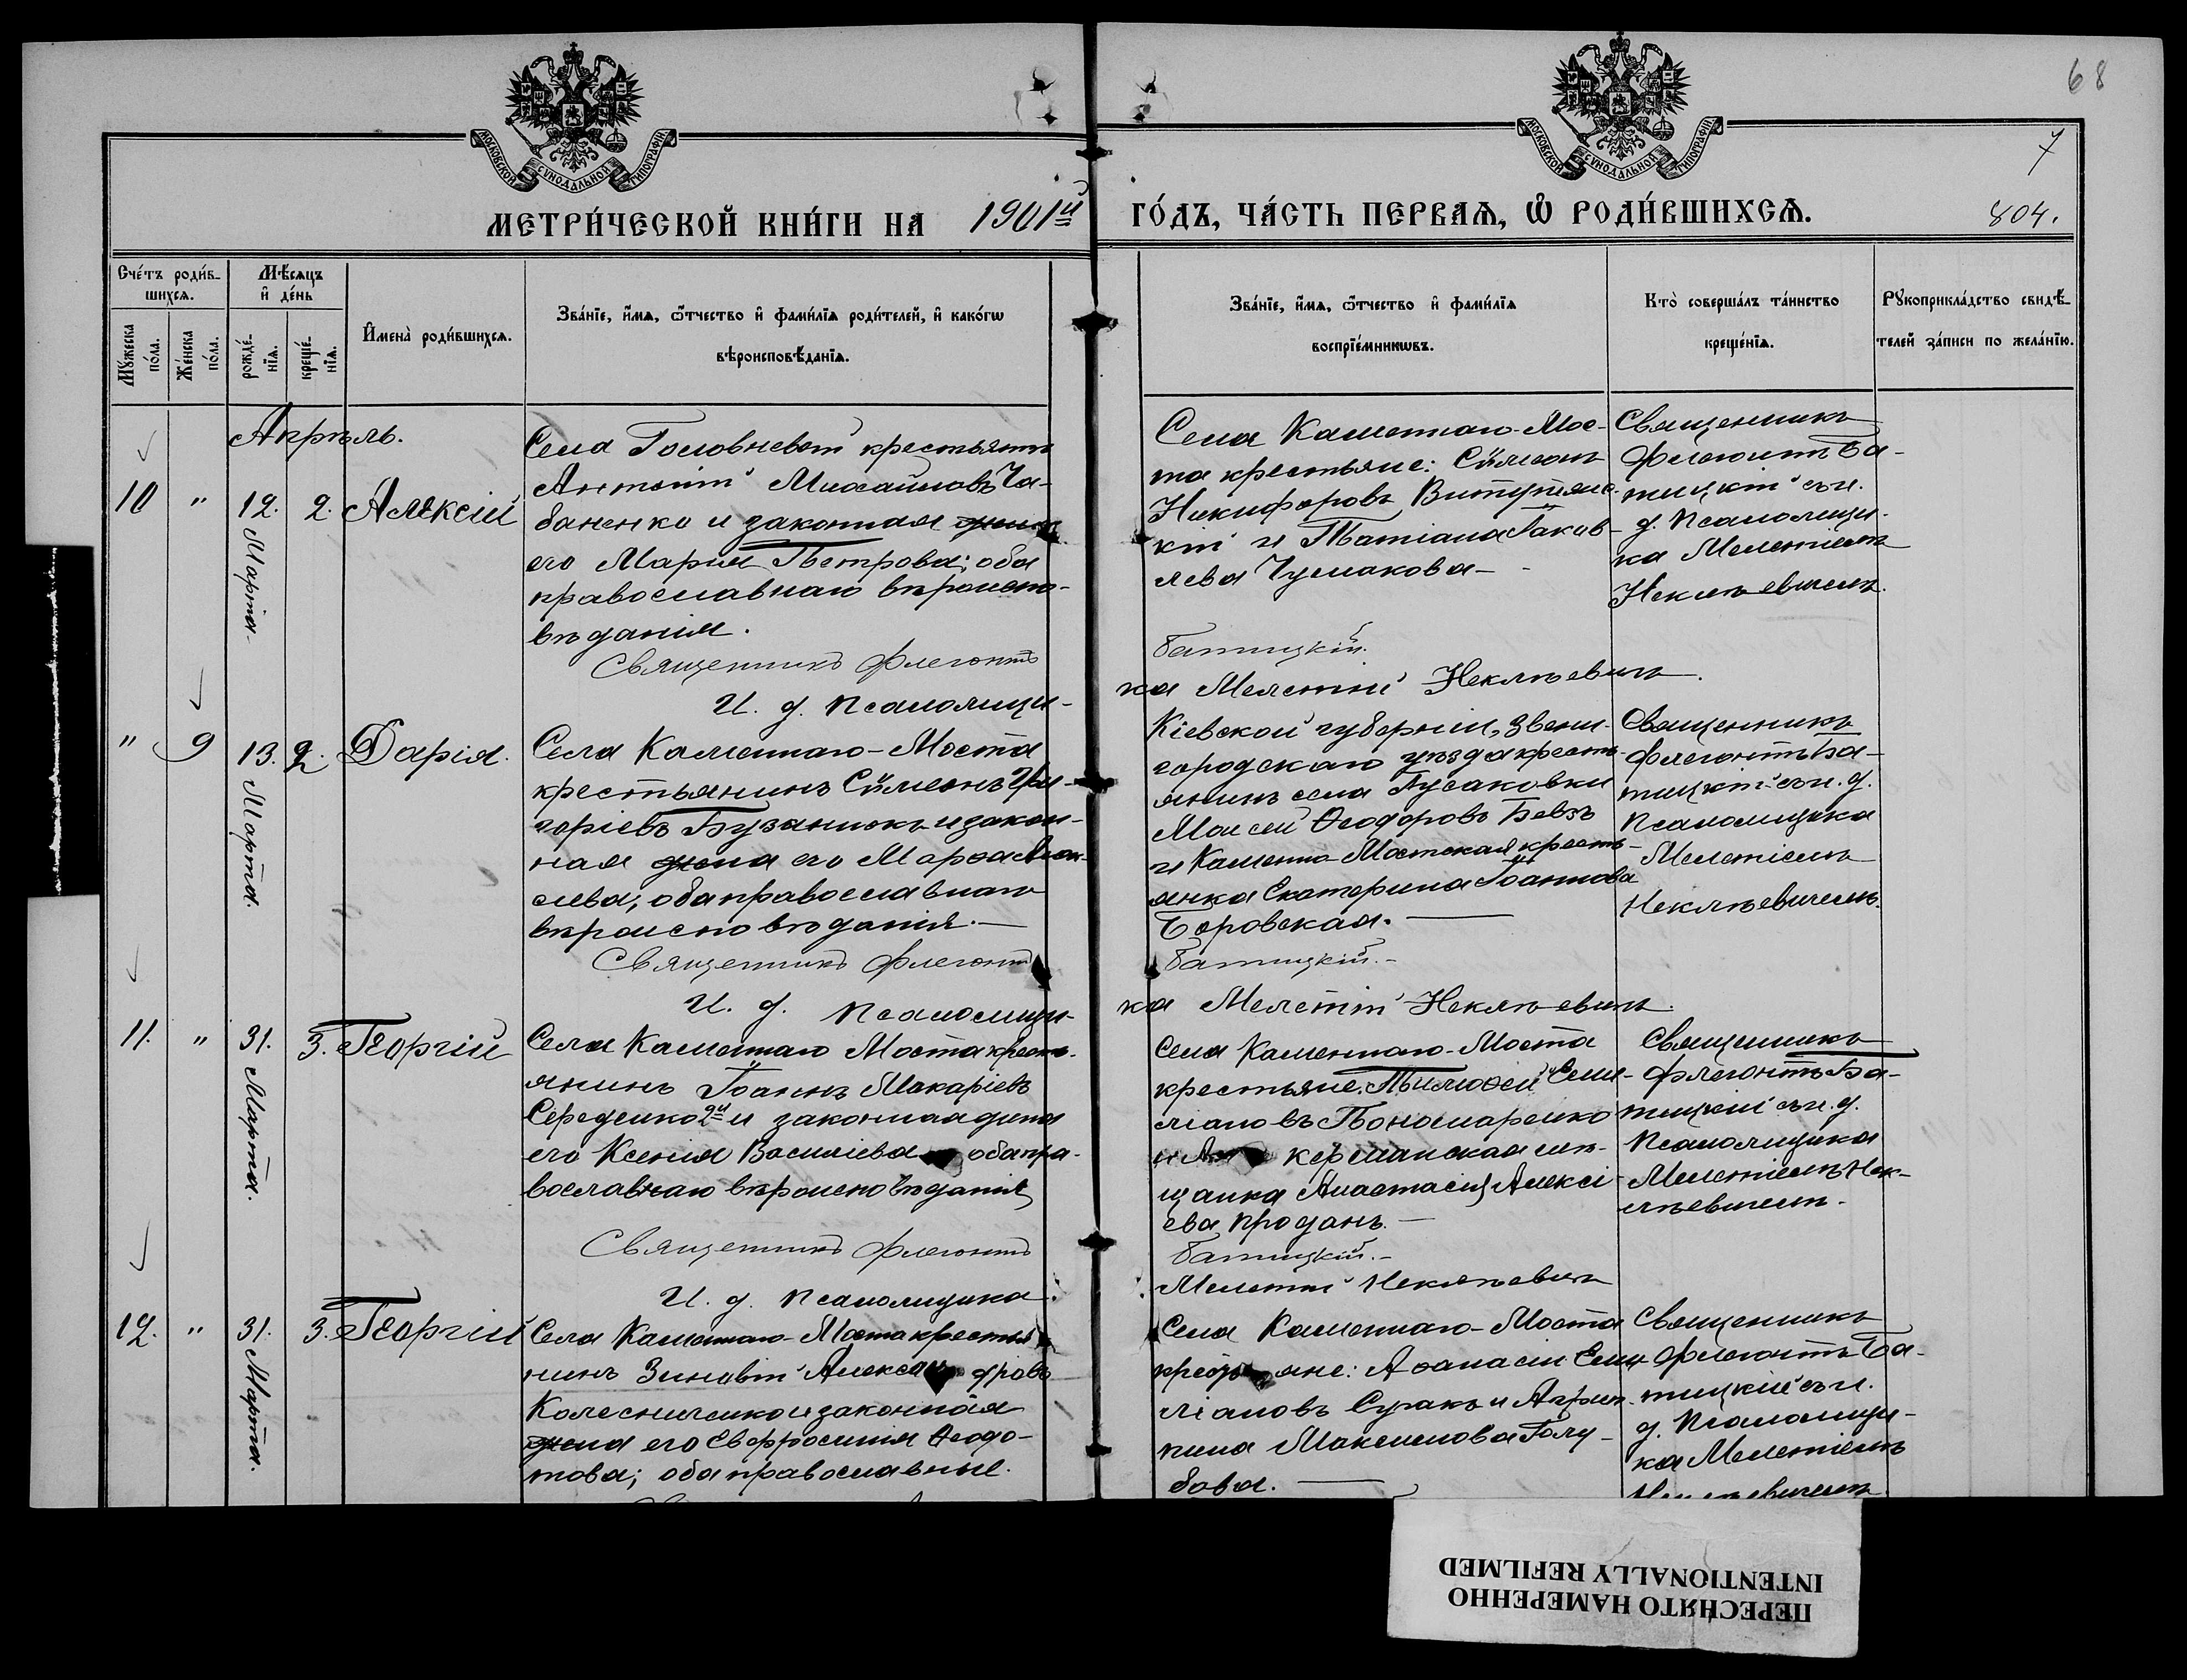 68
7
МОСКОВСКОЙ СѴНОДАЛЬНОЙ ТИПОГРАФІИ
МОСКОВСКОЙ СѴНОДАЛЬНОЙ ТИПОГРАФІИ
МЕТРИ́ЧЕСКОЙ КНИ́ГИ НА 1901й ГО́ДЪ, ЧА́СТЬ ПЕРВАѦ, Ѡ҆ РОДИ́ВШИХСѦ.
804.
Сче́тъ роди́в-
шихсѧ.
Мꙋжеска по́ла.
Же́нска по́ла.
Мѣ́сѧцъ
и҆ де́нь
рожде́-
нїѧ.
креще́-
нїѧ.
И҆мена̀ роди́вшихсѧ.
Зва́нїе, и҆́мѧ, ѻ҆́тчество и҆ фами́лїѧ роди́телей, и҆ како́гѡ
вѣроисповѣ́данїѧ.
Зва́нїе, и҆́мѧ, ѻ҆́тчество и҆ фами́лїѧ
воспрїе́мникѡвъ.
Кто̀ соверша́лъ та́инство
креще́нїѧ.
Рꙋкоприкла́дство свидѣ́-
телей за́писи по жела́нїю.
Апрѣль.
10 " 12. Марта. 2. Алексій
Села Головневой крестьянинъ
Антоній Михаиловъ Ча-
баненко и законная жена
его Марія Петрова; оба
православнаго вѣроиспо-
вѣданія.
Села Каменнаго-Мос-
та крестьяне: Сѵмеонъ
Никифоровъ
и Татіана Іаков-
лева Чумакова-
Священникъ
Флегонтъ Ба-
тицкій съ и.
д. псаломщи-
ка Мелетіемъ
Неклѣевичемъ.
Священникъ Флегонтъ Батицкій.
И. д. псаломщика Мелетій Неклѣевичъ.
" 9 13. Марта. 2. Дарія.
Села Каменнаго-Моста
крестьянинъ Сѵмеонъ Гри-
горіевъ Бузанюкъ и закон-
ная жена его Марѳа Иак-
лева, оба православнаго
вѣроисповѣданія.-
Кіевской губерніи, Звени-
городскаго уѣзда кресть-
янинъ села Гусаковки
Моисей Ѳеодоровъ Бевзъ
и Каменно-Мостская кресть-
янка Екатерина Іоаннова
Боровская.
Священникъ
Флегонтъ Ба-
тицкій съ и. д.
псаломщика
Мелетіемъ
Неклѣевичемъ.
Священникъ Флегонтъ Батицкій.-
И. д. псаломщика Мелетій Неклѣевичъ.
11. " 31. Марта. 3. Георгій
Села Каменнаго Моста кресть-
янинъ Іоаннъ Макаріевъ
Середенко 2й и законная жена
его Ксенія Василіева оба пра-
вославнаго вѣроисповѣданія
Села Каменнаго-Моста
крестьяне: Тимоѳей Еми-
ліановъ Пономаренко
и керманская мѣ-
щанка Анастасія Алексі-
ева Проданъ.-
Священникъ
Флегонтъ Ба-
тицкій съ и. д.
псаломщика
Мелетіемъ Нек-
лѣевичемъ.
Священникъ Флегонтъ Батицкій.-
И. д. псаломщика Мелетій Неклѣевичъ
12. " 31. Марта. 3. Георгій
Села Каменнаго-Моста крестья-
нинъ Зиновій Александровъ
Колесниченко и законная
жена его Евфросинія Ѳеодо-
това; оба православные.
Села Каменнаго-Моста
крестьяне: Аѳанасій Еми-
ліановъ Сугакъ и Агрип-
пина Максимова Голу-
бова.
Священникъ
Флегонтъ Ба-
тицкій съ и.
д. псаломщи-
ка Мелетіемъ
Неклѣевичемъ
ПЕРЕСНЯТО НАМЕРЕННО
INTENTIONALLY REFILMED